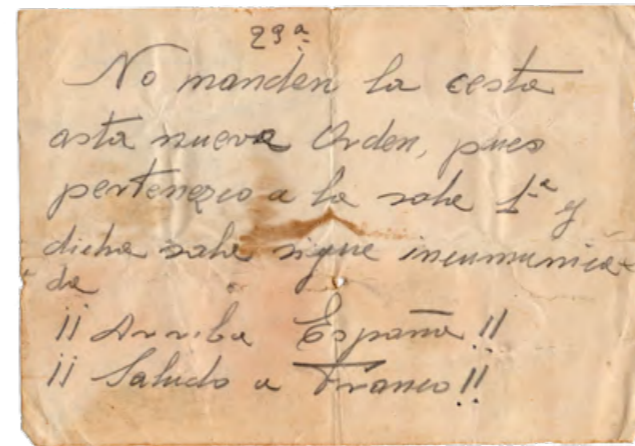 29ª
No manden la cesta
asta nueva Orden, pues
pertenezco a la sala 1ª y
dicha sala sigue incumunica-
da
¡¡Arriba España!!
¡¡Saludo a Franco!!